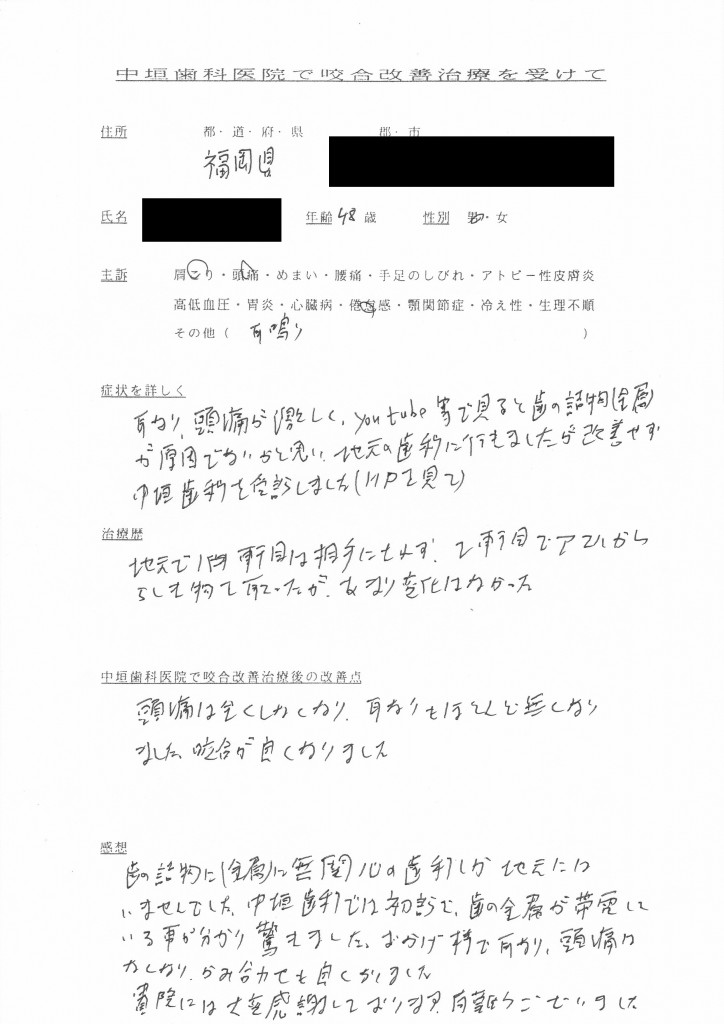 中垣歯科医院で咬合改善治療を受けて
住所 都・道・府・県 郡・市
福岡県
氏名 年齢 48 歳 性別 男・女
主訴 肩こり・頭痛・めまい・腰痛・手足のしびれ・アトピー性皮膚炎
高低血圧・胃炎・心臓病・倦怠感・顎関節症・冷え性・生理不順
その他（ 耳鳴り ）
症状を詳しく
耳なり、頭痛が激しく、youtube等で見ると歯の詰物(金属)
が原因でないかと思い、地元の歯科に行きましたが改善せず
中垣歯科を受診しました(HPを見て)
治療歴
地元で1件軒目は相手にせず、2軒目でアマルガム
らしき物を取ったが、あまり変化はなかった
中垣歯科医院で咬合改善治療後の改善点
頭痛は全くしなくなり、耳なりもほとんど無くなり
ました、咬合が良くなりました
感想
歯の詰物に(金属)に無関心の歯科しか地元には
いませんでした、中垣歯科では初診で、歯の金属が帯電して
いる事が分かり驚きました、おかげ様で耳なり、頭痛は
なくなり、かみ合わせも良くなりました
貴院には大変感謝しております、有難うございました